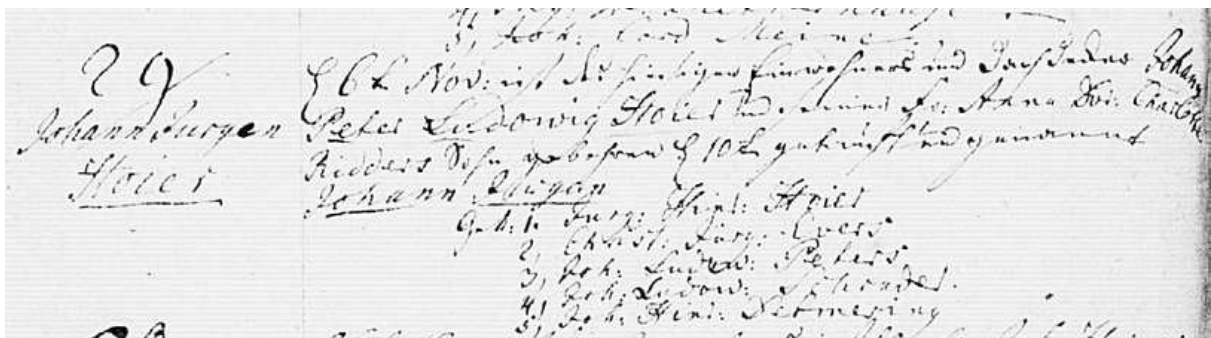 3, Joh: Cord Meine
29
Johann Jurgen
Hoier
d 6t Nov: ist des hiesigen Einwohners und Dachdeckers Johann
Peter Ludewig Hoier und seiner Fr: Anna Dor: Charlotte
Ridders Sohn gebohren d 10t getauft und genannt
Johann Jurgen
Gev: 1. Jurg: Hinr: Hoier
2, Christ: Jürg: Evers
3, Joh: Ludew: Peters
4, Joh: Ludow:
5, Joh: Hinr: Detmering